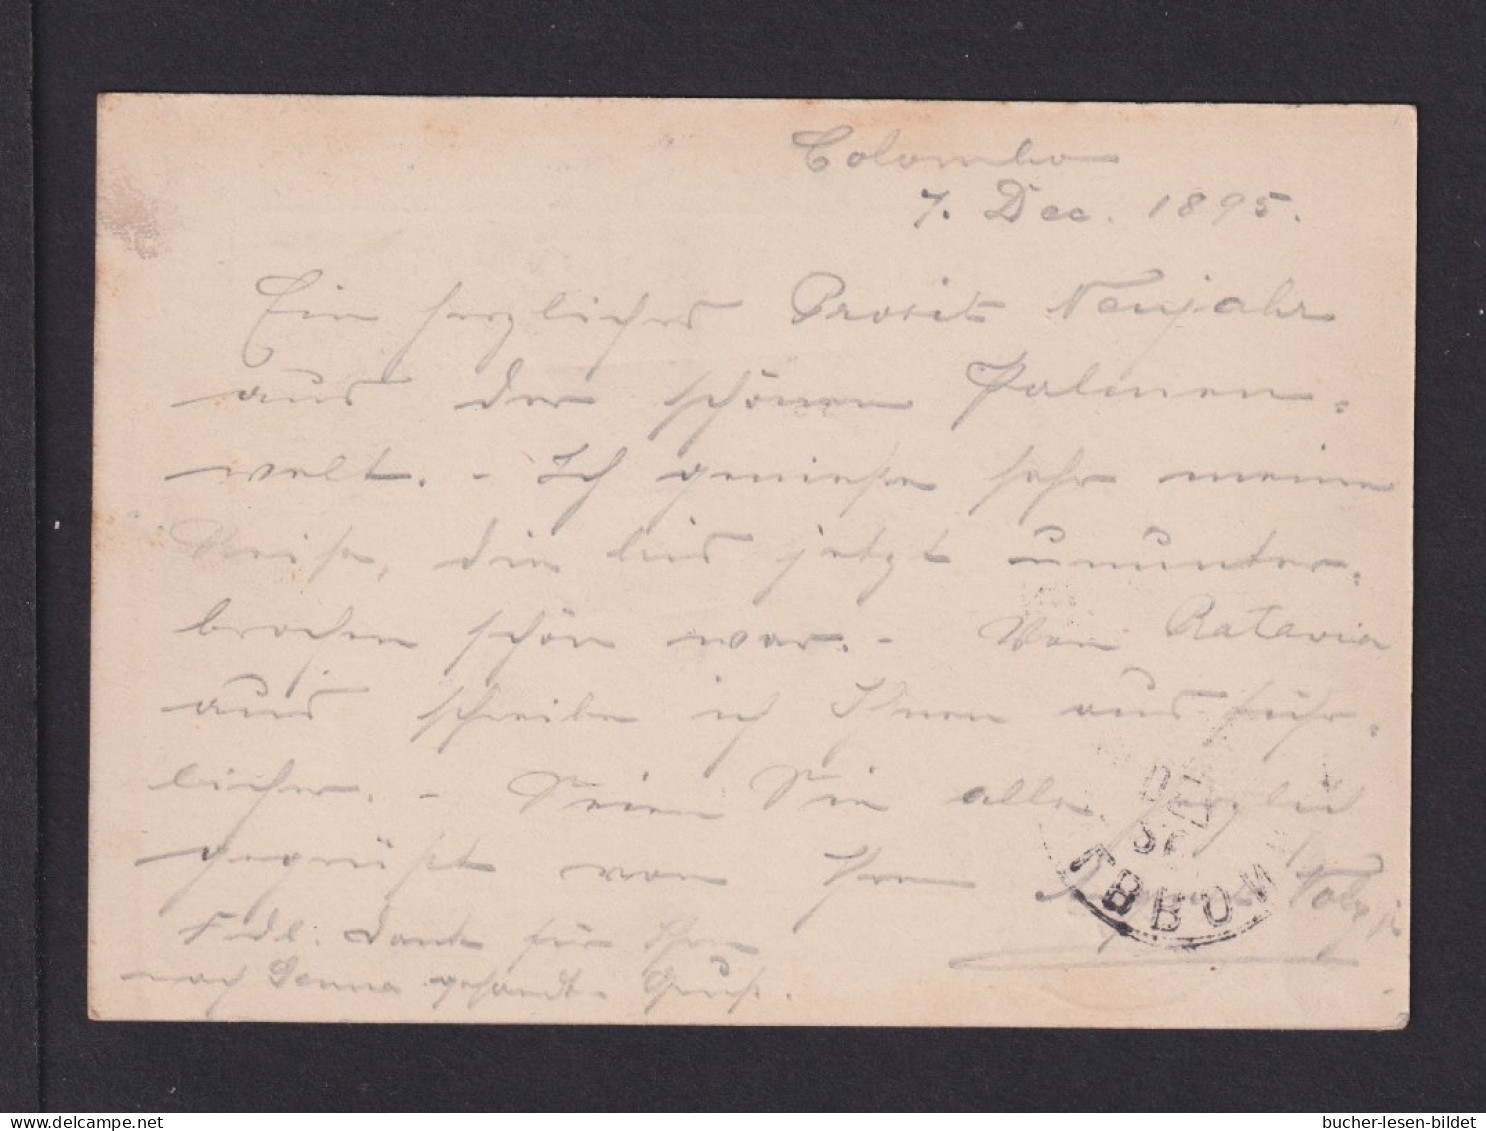 Colombo
7. Dec. 1895.
Ein herzliches Prosit Neujahr
aus der schönen Palmen-
welt. - Ich genieße sehr meine
Reise, die bis jetzt ununter-
brochen schön war. - Von Batavia
aus schreibe ich Ihnen ausführ-
licher. - Seien Sie alle herzlich
gegrüßt von Ihrem
Fdl. Dank für Ihren
nach Genua gesandt. Gruß.
bucher-lesen-bildet